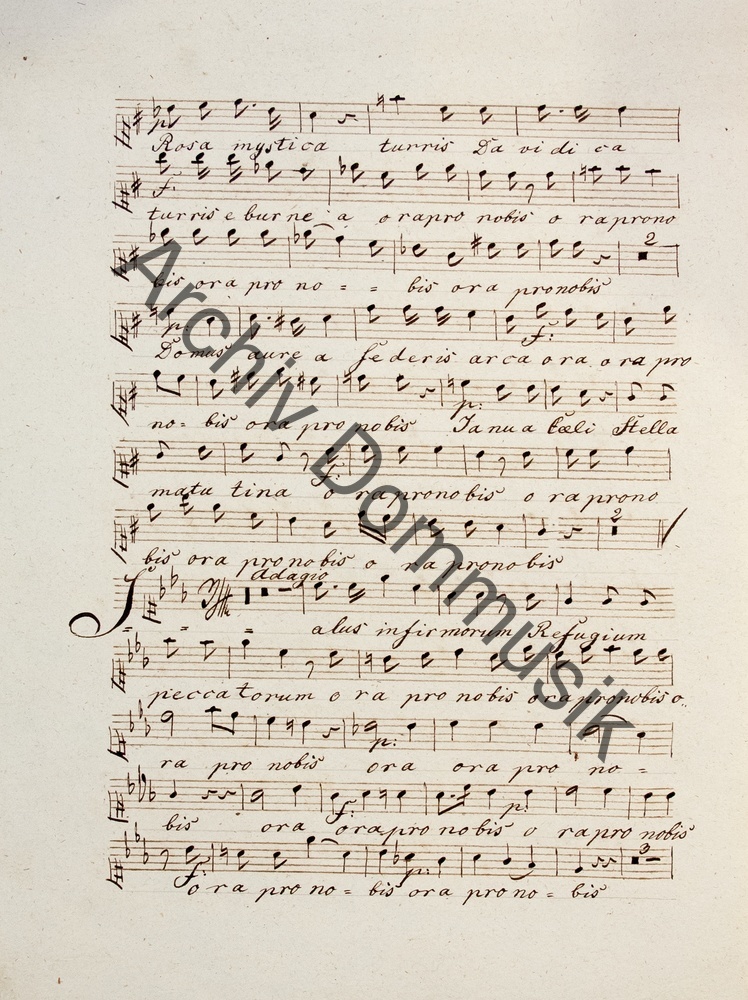 p.
Rosa mystica turris Da vi di ca
f.
turris e bur ne a o rapro nobis o ra prono
2
bis ora pro no = = bis ora pronobis
p. f.
Domus aure a fe deris arca ora ora pro
p.
no = bis ora pro nobis Ianua Cœli Stella
f.
matu tina o ra pronobis o ra prono
2
bis ora pronobis o ra pronobis
Adagio
S = = = alus infirmorum Refugium
peccatorum o ra pro nobis ora pronobis o
p.
ra pro nobis ora ora pro no =
f. p.
bis ora ora pro nobis o ra pro nobis
f. p. 3
o ra pro no = bis ora pro no = bis
Archiv Dommusik